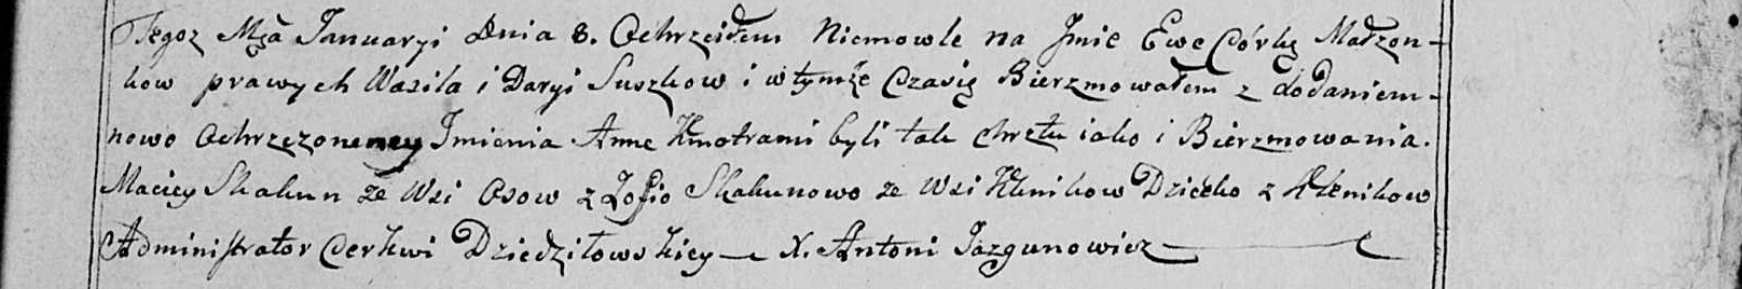 Tegoz Mca Januaryi Dnia 8. Ochrzciłem Niemowle na Jmie Ewe Córkę Małzon-
kow prawych Wasila i Daryi Suszkow i w tymże Czasię Bierzmowałem z dodaniem-
nowo Ochrzczoneney Jmienia Anne Kmotrami byli tak chrztu iako i Bierzmowania.
Maciey Skakun ze Wsi Osow z Zofio Skakunowo ze Wsi Kłenikow Dziecko z Kłenikow
Administrator Cerkwi Dziedziłowskiey — X. Antoni Jazgunowicz —